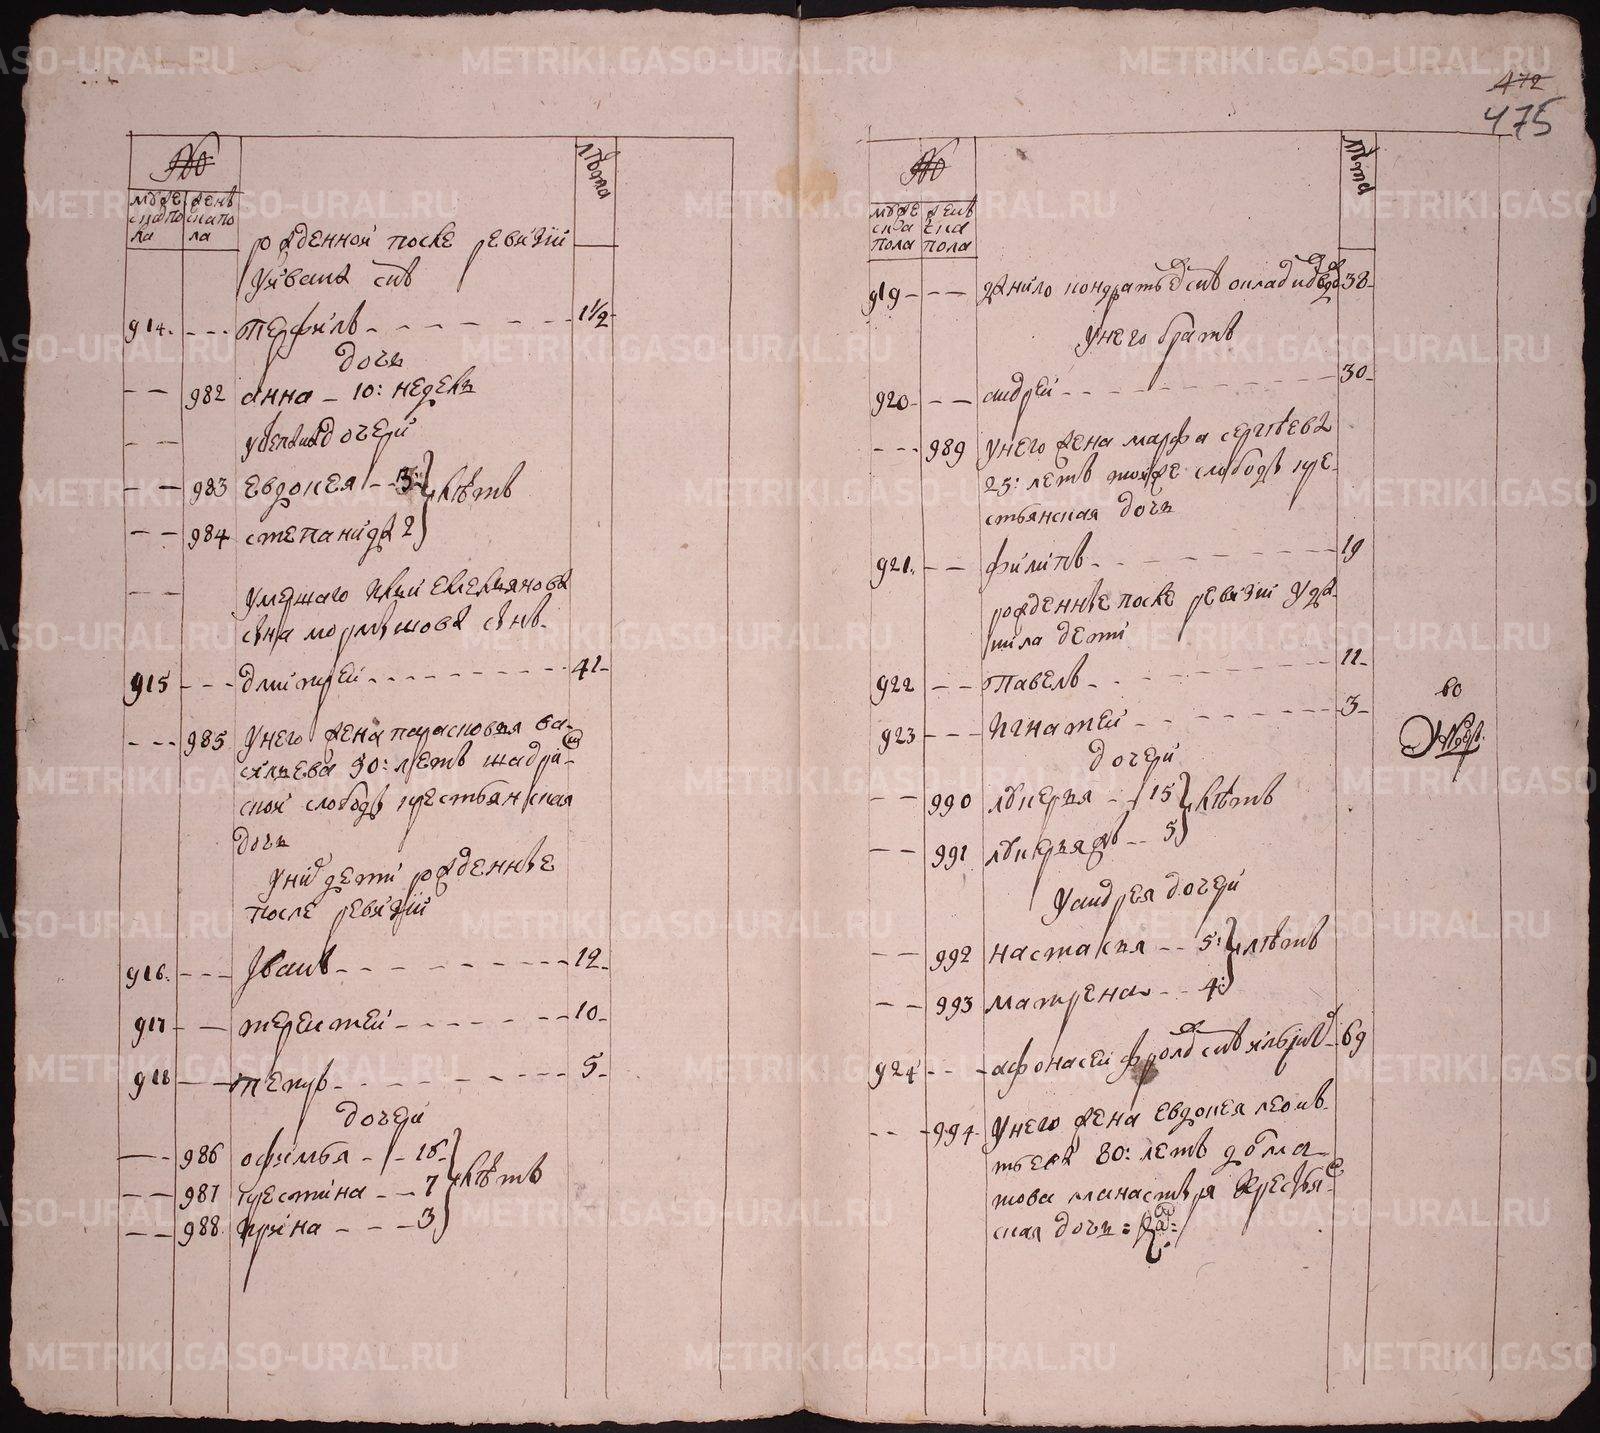 472
475
№
лѣта
мужe
ска по
ла
женs
ска по
ла
рожденной после ревизiи
у ивана сынъ
914. перфилъ 1 1/2
дочь
982 анна 10: недель
дочери
983 евдокея 3: лѣтъ
984 степанида 2
умершаго емельянова
сына сынъ
915 дмитрей 41
985 у него жена парасковья ва
сильева 50: летъ шадри
ской слободы крестьянская
дочь
у них дети рожденные
после ревизiи
916. iванъ 12
917 терентей 10
918 петръ 5
дочери
986 офимья 15
987 крестина 7 лѣтъ
988 ирина 3
№
лѣта
муже
ска
пола
женs
ска
пола
919 данило кондратьевъ сынъ 38
у него братъ
920 андрей 30
989 у него жена марфа сергѣева
25: летъ той же слободы кре
стьянская дочь
921. филипъ 19
рожденные после ревизiи у да
нила дети
922 павелъ 11
923 игнатей 3
дочери
990 лукерья 15 лѣтъ
991 лукерья жъ 5
у андрея дочери
992 настасья 5: лѣтъ
993 матрена 4:
924 афонасей фроловъ сынъ 69
994 у него жена евдокея леонъ
тьева 80: летъ долма
това манастыря крестья
ская дочь
во